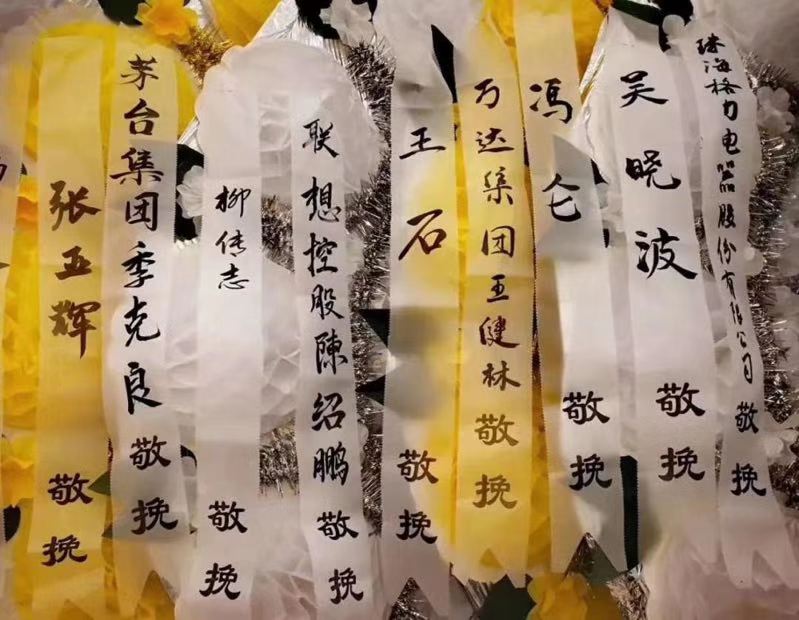 张五辉敬挽
茅台集团季克良敬挽
柳传志敬挽
联想控股陳绍鹏敬挽
王石敬挽
万达集团王健林敬挽
冯仑敬挽
吴晓波敬挽
珠海格力电器股份有限公司敬挽